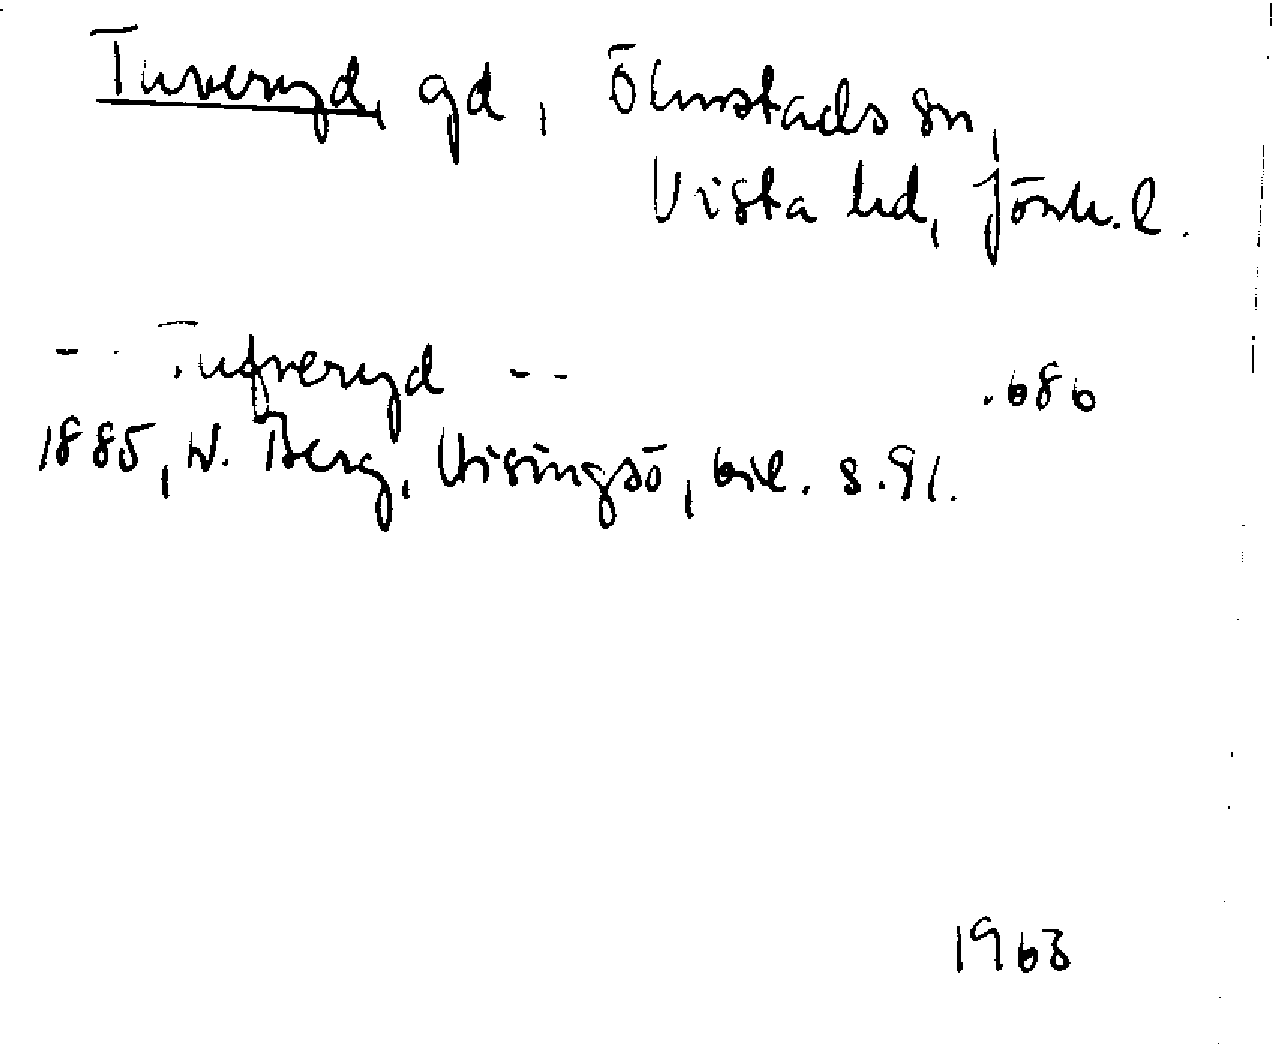 Tuveryd, gd, Ölmstads sn,
Vista hd, Jönk. l.
-- Tufveryd --
1885, W. Berg, Visingsö, bil. s. 91.
1963